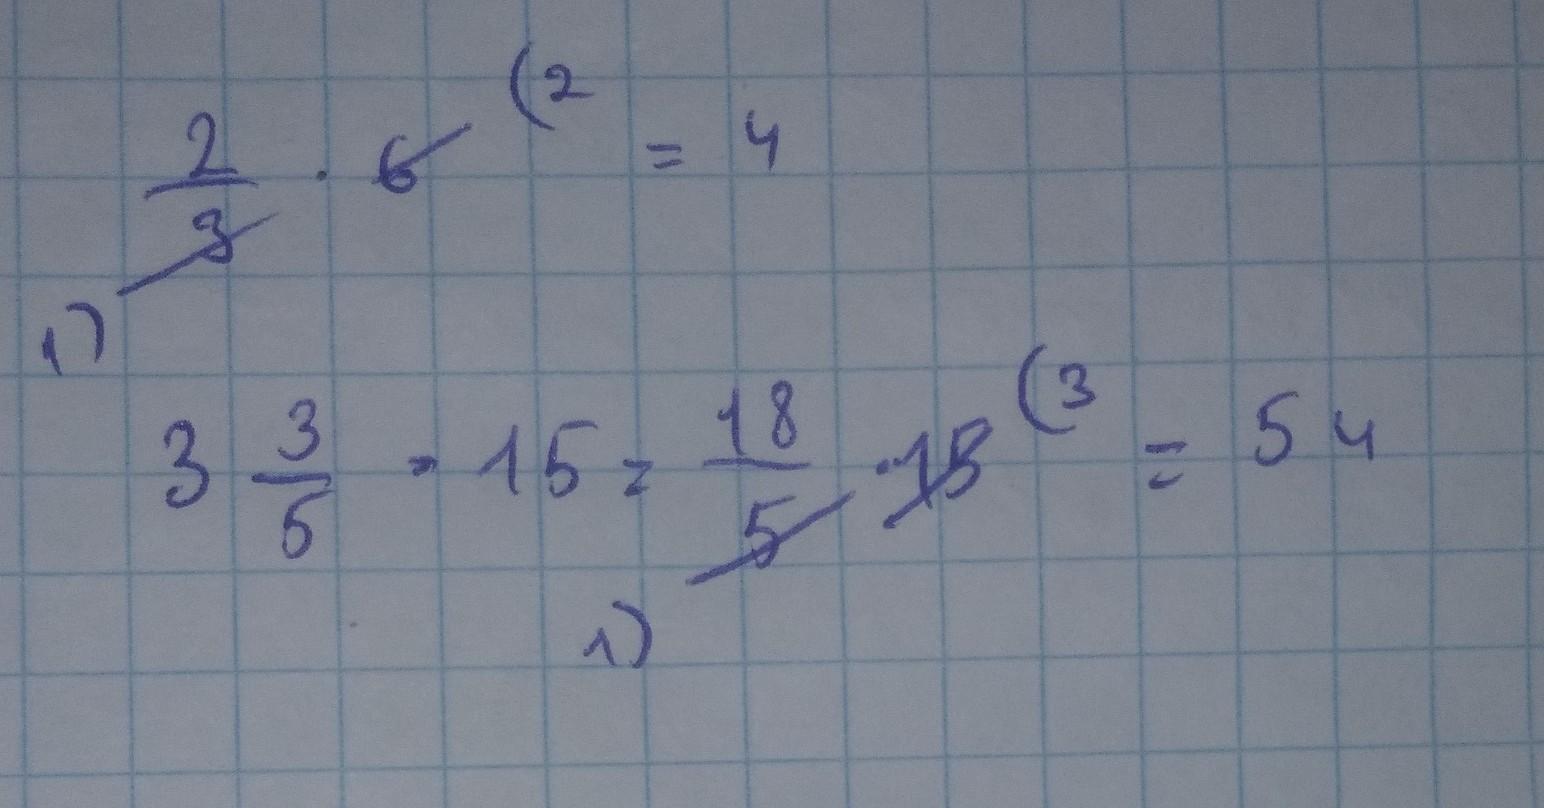 2/3 · 6 (2 = 4
1)
3 3/5 · 15 = 18/5 · 15 (3 = 54
1)